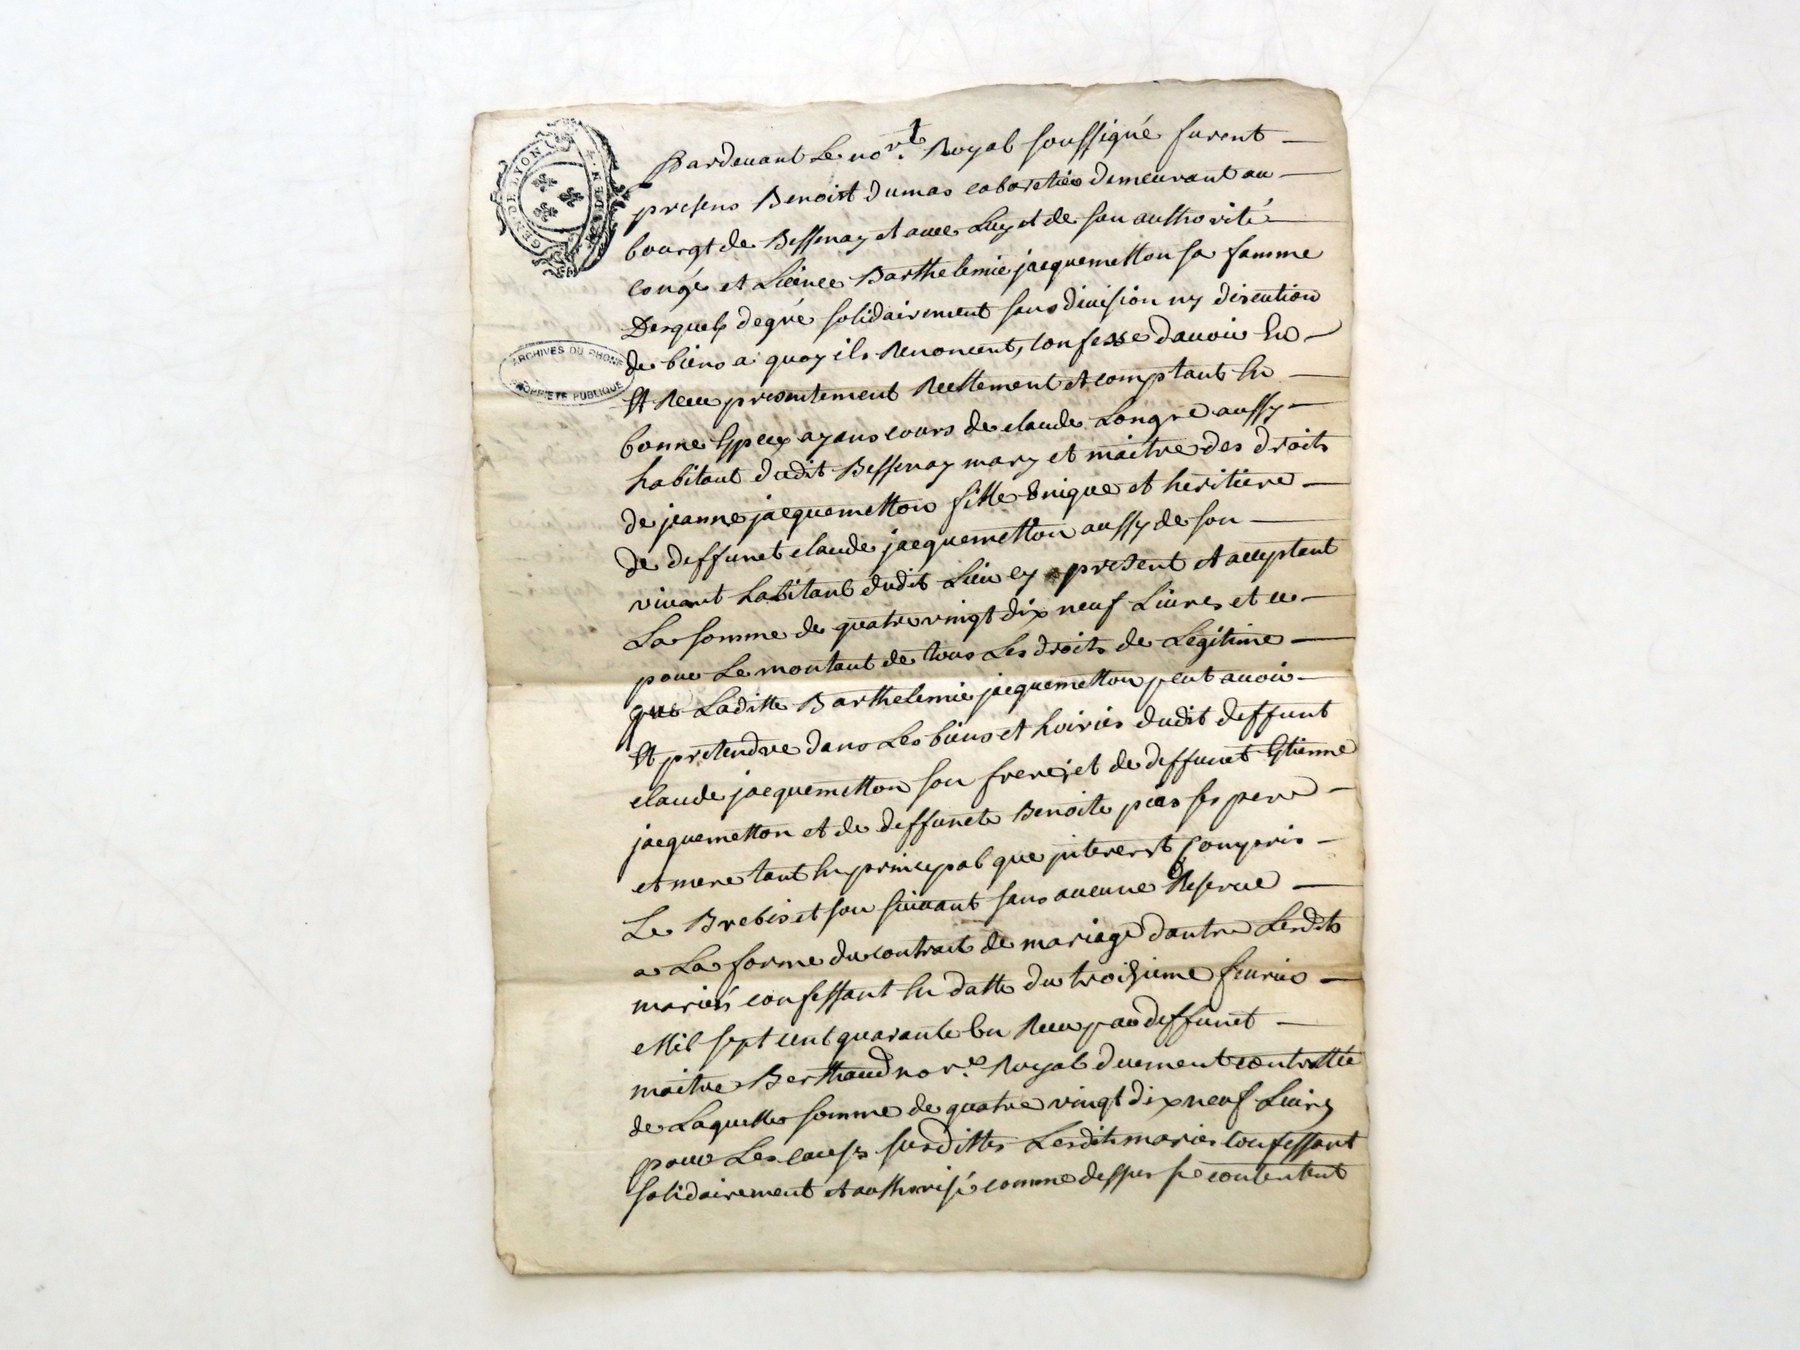 1
GEN. DE LYON
ARCHIVES DU RHONE
PROPRIÉTÉ PUBLIQUE
Pardeuant Le no.re Royal soussigné furent
presens Benoist dumas cabaretier demeurant au
bourgt de Bessenay et auec Luy et de son authorité
congé et Licence Barthelemie jacquemetton sa famme
Lesquels de gré solidairement sans diuision ny discution
de biens a quoy ils Renoncent, confesse dauoir Eu
Et Receu presentement Reellement et comptant En
bonne Espece ayans cours de claude Longre aussy
habitant dudit Bessenay mary et maitre des droits
de jeanne jacquemetton fille Unique et heritiere
de deffunct claude jacquemetton aussy de son
viuant habitant dudit Lieu cy present et acceptant
La somme de quatre vingt dix neuf Liures et ce
pour Le montant de tous Les droits de Legitime
que Laditte Barthelemie jacquemetton peut auoir
Et pretendre dans Les biens et hoiries dudit deffunt
claude jacquemetton son frere, et de deffunct Etienne
jacquemetton et de deffuncte Benoite ses pere
et mere tant En principal que jnterest compris
Le Brebis et son suiuant sans aucune Reserue
a La forme du contract de mariage dantre Lesdits
mariés confessant En datte du troizieme feurier
Mil sept cent quarante Un Receu par deffunct
maitre Berthaud no.re Royal duement controllée
de Laquelle somme de quatre vingt dix neuf Liures
pour Les causes susdittes Lesdits mariés confessant
solidairement et authorisé comme dessus se contentent